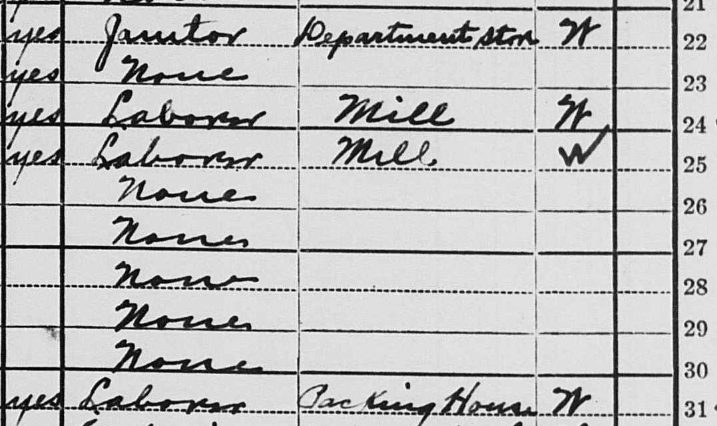 21
yes Janitor Department stor W 22
yes None 23
yes Laborer Mill W 24
yes Laborer Mill W 25
None 26
None 27
None 28
None 29
None 30
yes Laborer Packing House W 31